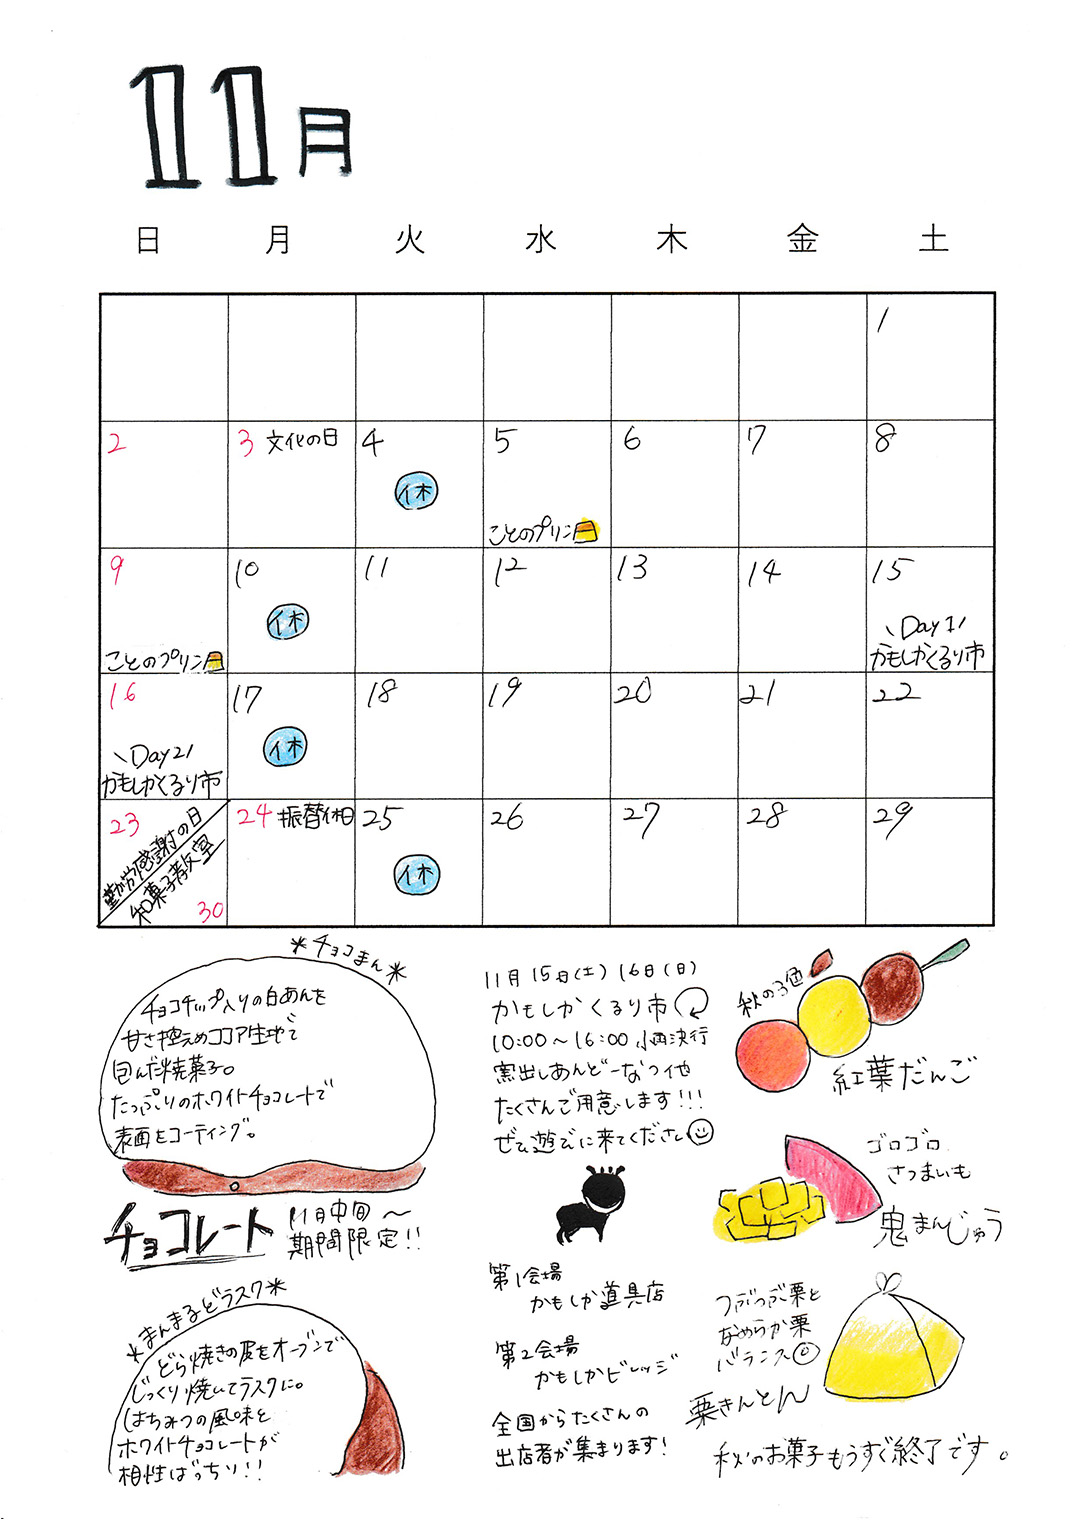 11月
日 月 火 水 木 金 土
1
2 3 文化の日 4 5 6 7 8
休
ことのプリン
9 10 11 12 13 14 15
休
\Day 1/
かもしかくるり市
ことのプリン
16 17 18 19 20 21 22
\Day 2/
かもしかくるり市
休
23 勤労感謝の日
30 和菓子教室
24 振替休日 25 26 27 28 29
休
*チョコまん*
チョコチップ入りの白あんを
甘さ控えめココア生地で
包んだ焼菓子。
たっぷりのホワイトチョコレートで
表面をコーティング。
チョコレート
11月中旬〜
期間限定!!
*まんまるどらスク*
どら焼きの皮をオーブンで
じっくり焼いてラスクに。
はちみつの風味と
ホワイトチョコレートが
相性ばっちり!!
11月15日(土)16日(日)
かもしかくるり市
10:00〜16:00 小雨決行
窯出しあんどーなつ他
たくさんご用意します!!!
ぜひ遊びに来てください
第1会場
かもしか道具店
第2会場
かもしかビレッジ
全国からたくさんの
出店者が集まります!
秋の3色
紅葉だんご
ゴロゴロ
さつまいも
鬼まんじゅう
つぶつぶ栗と
なめらか栗
バランス
栗きんとん
秋のお菓子もうすぐ終了です。